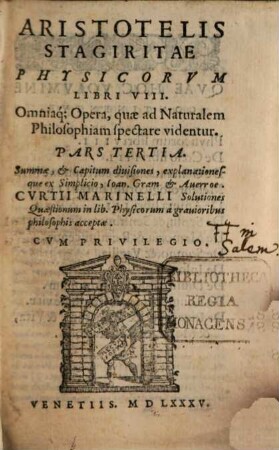 ARISTOTELIS
STAGIRITAE
PHYSICORVM
LIBRI VIII.
Omniaq; Opera, quæ ad Naturalem
Philosophiam spectare videntur.
PARS TERTIA.
Summæ, & Capitum diuisiones, explanationes-
que ex Simplicio, Ioan. Gram & Auerroe.
CVRTII MARINELLI Solutiones
Quæstionum in lib. Physicorum à grauioribus
philosophis acceptæ.
CVM PRIVILEGIO.
Salem
BIBLIOTHECA
REGIA
MONACENSIS
VENETIIS. M D LXXXV.